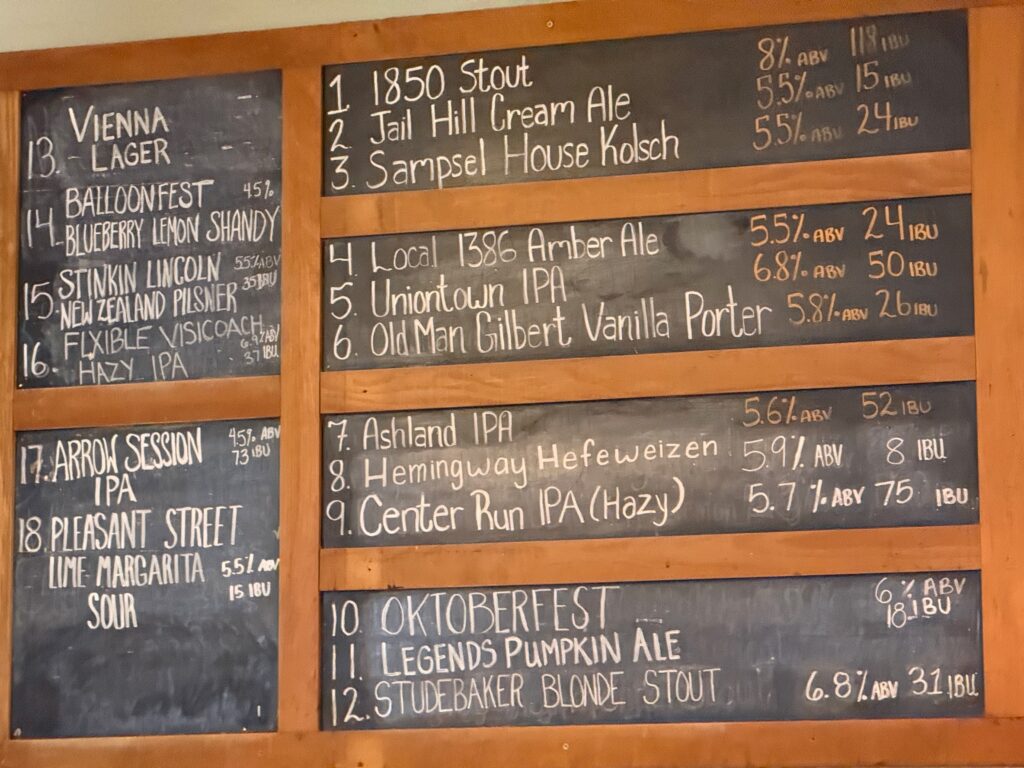 13. VIENNA
LAGER
14. BALLOONFEST 4.5%
BLUEBERRY LEMON SHANDY
15. STINKIN LINCOLN 5.5% ABV
NEW ZEALAND PILSNER 35 IBU
16. FLXIBLE VISICOACH
HAZY IPA 37 IBU
17. ARROW SESSION 4.5% ABV
IPA 73 IBU
18. PLEASANT STREET
LIME MARGARITA 5.5% ABV
SOUR 15 IBU
1 1850 Stout 8% ABV 118 IBU
2 Jail Hill Cream Ale 5.5% ABV 15 IBU
3. Sampsel House Kolsch 5.5% ABV 24 IBU
4 Local 1386 Amber Ale 5.5% ABV 24 IBU
5. Uniontown IPA 6.8% ABV 50 IBU
6. Old Man Gilbert Vanilla Porter 5.8% ABV 26 IBU
7. Ashland IPA 5.6% ABV 52 IBU
8. Hemingway Hefeweizen 5.9% ABV 8 IBU
9. Center Run IPA (Hazy) 5.7% ABV 75 IBU
10. OKTOBERFEST 6% ABV
18 IBU
11. LEGENDS PUMPKIN ALE
12. STUDEBAKER BLONDE STOUT 6.8% ABV 31 IBU